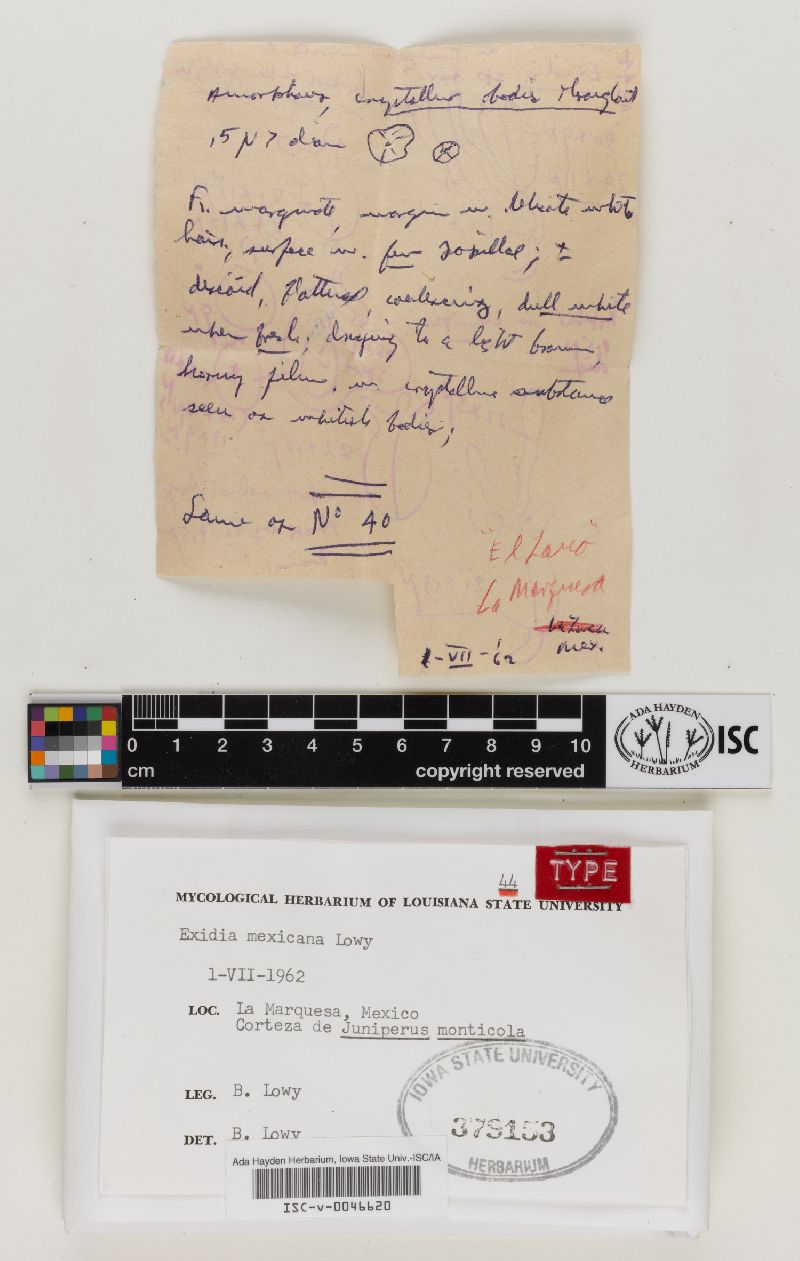 Amorphous, crystalline bodies throughout
15 µ > diam
Fr. marginate, margin w. delicate white
hairs, surface w. few papillae; ±
discoid, flattened, coalescing, dull white
when fresh; drying to a light brown,
horny film, w. crystalline substance
seen as whitish bodies;
Same as Nº 40
"El Zarco"
La Marquesa
Mex.
1-VII-62
0 1 2 3 4 5 6 7 8 9 10
cm copyright reserved
ADA HAYDEN
HERBARIUM
ISC
44
TYPE
MYCOLOGICAL HERBARIUM OF LOUISIANA STATE UNIVERSITY
Exidia mexicana Lowy
1-VII-1962
LOC. La Marquesa, Mexico
Corteza de Juniperus monticola
LEG. B. Lowy
DET. B. Lowy
IOWA STATE UNIVERSITY
379153
HERBARIUM
Ada Hayden Herbarium, Iowa State Univ.-ISC/IA
ISC-v-0046620